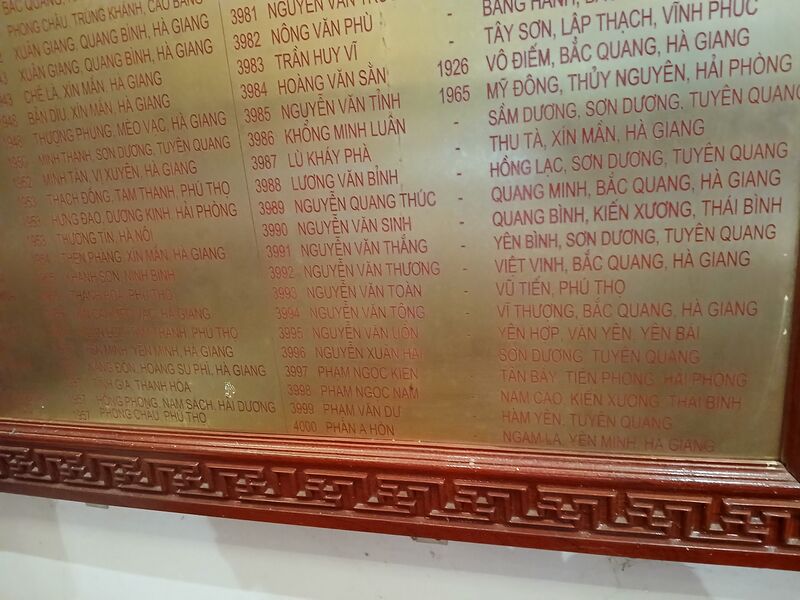 PHONG CHÂU, TRÙNG KHÁNH, CAO BẰNG
XUÂN GIANG, QUANG BÌNH, HÀ GIANG
XUÂN GIANG, QUANG BÌNH, HÀ GIANG
CHẾ LÀ, XÍN MẦN, HÀ GIANG
BẢN DÍU, XÍN MẦN, HÀ GIANG
THƯỢNG PHÙNG, MÈO VẠC, HÀ GIANG
MINH THANH, SƠN DƯƠNG, TUYÊN QUANG
MINH TÂN, VỊ XUYÊN, HÀ GIANG
THẠCH ĐỒNG, TAM THANH, PHÚ THỌ
HƯNG ĐẠO, DƯƠNG KINH, HẢI PHÒNG
THƯỜNG TÍN, HÀ NỘI
THÈN PHÀNG, XÍN MẦN, HÀ GIANG
KHÁNH SƠN, NINH BÌNH
THANH HÒA, PHÚ THỌ
HÀ GIANG
THANH, PHÚ THỌ
YÊN MINH, HÀ GIANG
NÀNG ĐÔN, HOÀNG SU PHÌ, HÀ GIANG
TĨNH GIA, THANH HÓA
HỒNG PHONG, NAM SÁCH, HẢI DƯƠNG
1957 PHONG CHÂU, PHÚ THỌ
3981 NGUYỄN VĂN
3982 NÔNG VĂN PHÙ
3983 TRẦN HUY VĨ
3984 HOÀNG VĂN SẰN
3985 NGUYỄN VĂN TỈNH
3986 KHỔNG MINH LUÂN
3987 LÙ KHÁY PHÀ
3988 LƯƠNG VĂN BỈNH
3989 NGUYỄN QUANG THÚC
3990 NGUYỄN VĂN SINH
3991 NGUYỄN VĂN THẮNG
3992 NGUYỄN VĂN THƯƠNG
3993 NGUYỄN VĂN TOÀN
3994 NGUYỄN VĂN TÔNG
3995 NGUYỄN VĂN UÔN
3996 NGUYỄN XUÂN HẢI
3997 PHẠM NGỌC KIÊN
3998 PHẠM NGỌC NAM
3999 PHẠM VĂN DƯ
4000 PHÀN A HÒN
BẰNG HÀNH,
- TÂY SƠN, LẬP THẠCH, VĨNH PHÚC
1926 VÔ ĐIẾM, BẮC QUANG, HÀ GIANG
1965 MỸ ĐỒNG, THỦY NGUYÊN, HẢI PHÒNG
- SẦM DƯƠNG, SƠN DƯƠNG, TUYÊN QUANG
- THU TÀ, XÍN MẦN, HÀ GIANG
- HỒNG LẠC, SƠN DƯƠNG, TUYÊN QUANG
- QUANG MINH, BẮC QUANG, HÀ GIANG
- QUANG BÌNH, KIẾN XƯƠNG, THÁI BÌNH
- YÊN BÌNH, SƠN DƯƠNG, TUYÊN QUANG
- VIỆT VINH, BẮC QUANG, HÀ GIANG
- VŨ TIẾN, PHÚ THỌ
- VĨ THƯỢNG, BẮC QUANG, HÀ GIANG
- YÊN HỢP, VĂN YÊN, YÊN BÁI
- SƠN DƯƠNG, TUYÊN QUANG
- TÂN BÂY, TIÊN PHONG, HẢI PHÒNG
- NAM CAO, KIẾN XƯƠNG, THÁI BÌNH
- HÀM YÊN, TUYÊN QUANG
- NGAM LA, YÊN MINH, HÀ GIANG